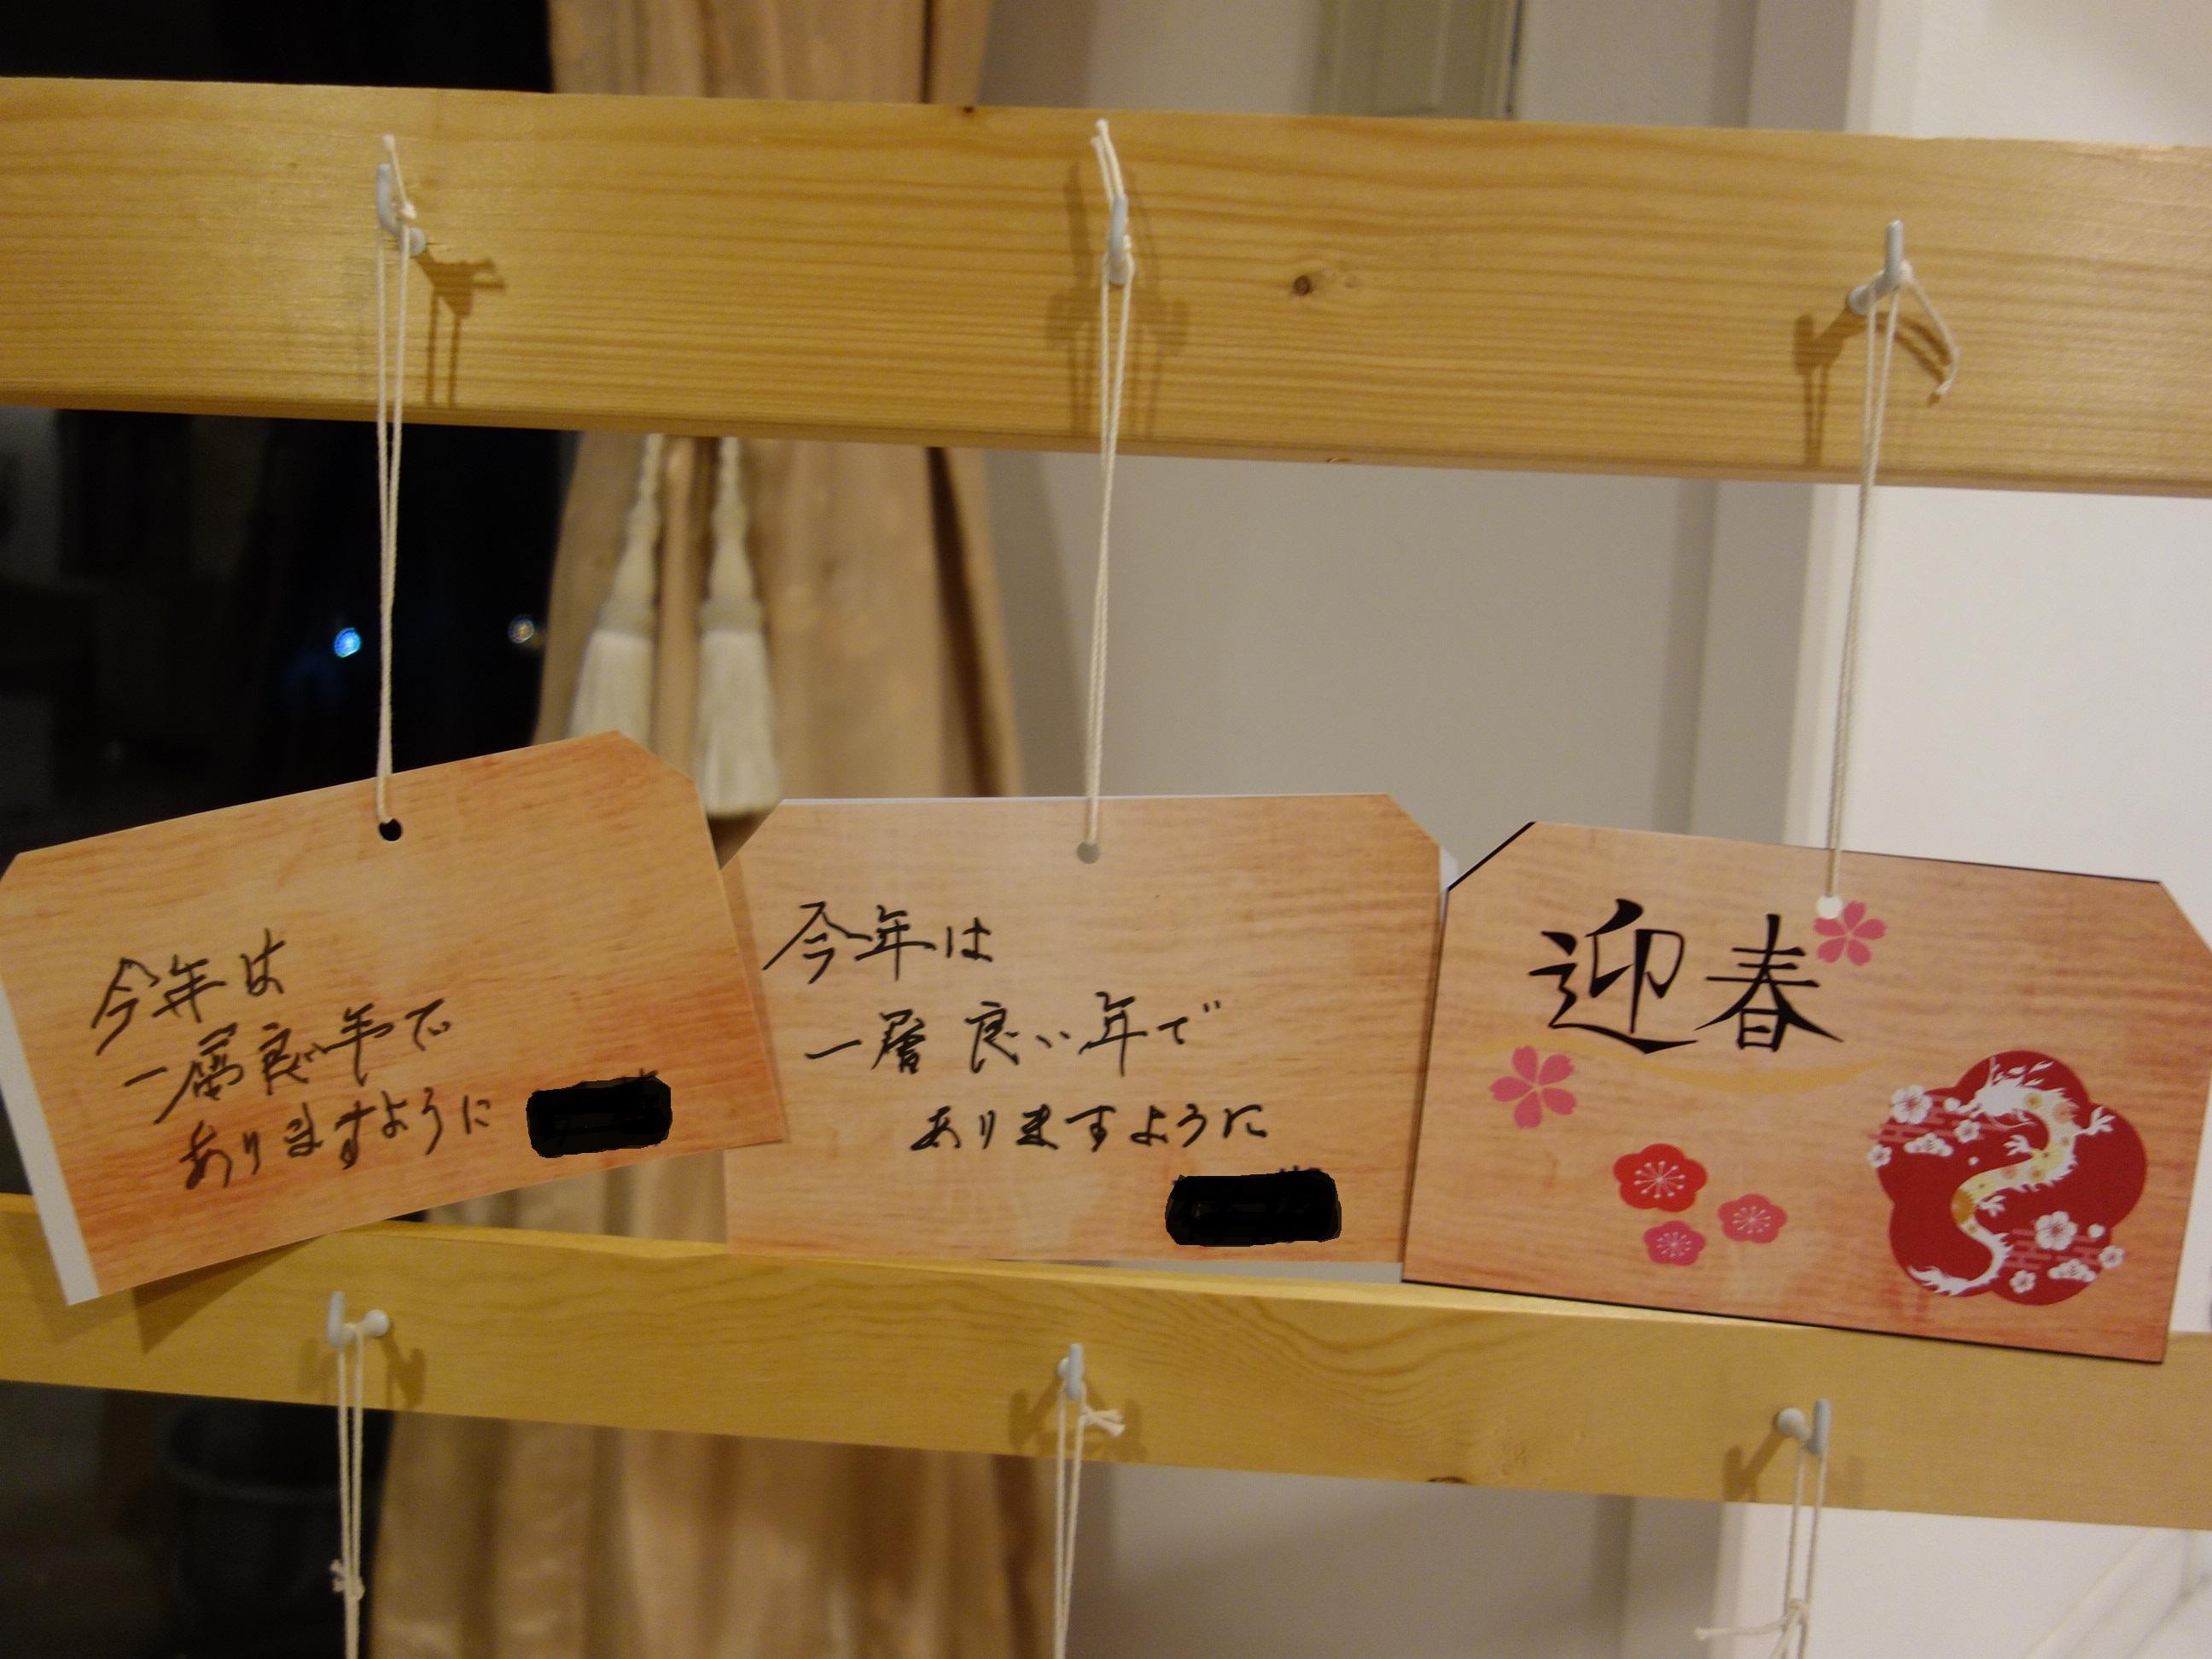 今年は
一層良い年で
ありますように
今年は
一層良い年で
ありますように
迎春